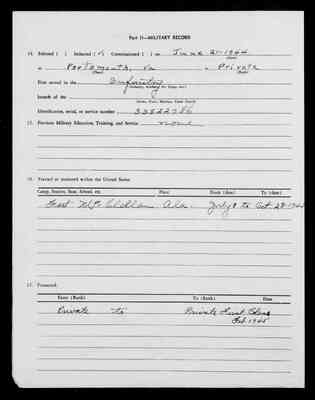 Part II—MILITARY RECORD
14. Enlisted ( ) Inducted (✓) Commissioned ( ) on June 21-1944
(Date)
at Portsmouth, Va as Private
(Place) (Rank)
First served in the Infantry
branch of the
(Army, Navy, Marines, Coast Guard)
Identification, serial, or service number
15. Previous Military Education, Training, and Service none
16. Trained or stationed within the United States:
Camp, Station, Base, School, etc. Place From (date) To (date)
Fort McClellan Ala. July 8 to Oct 28-1944
17. Promoted:
From (Rank) To (Rank) Date
Private to Private First Class
Feb. 1945